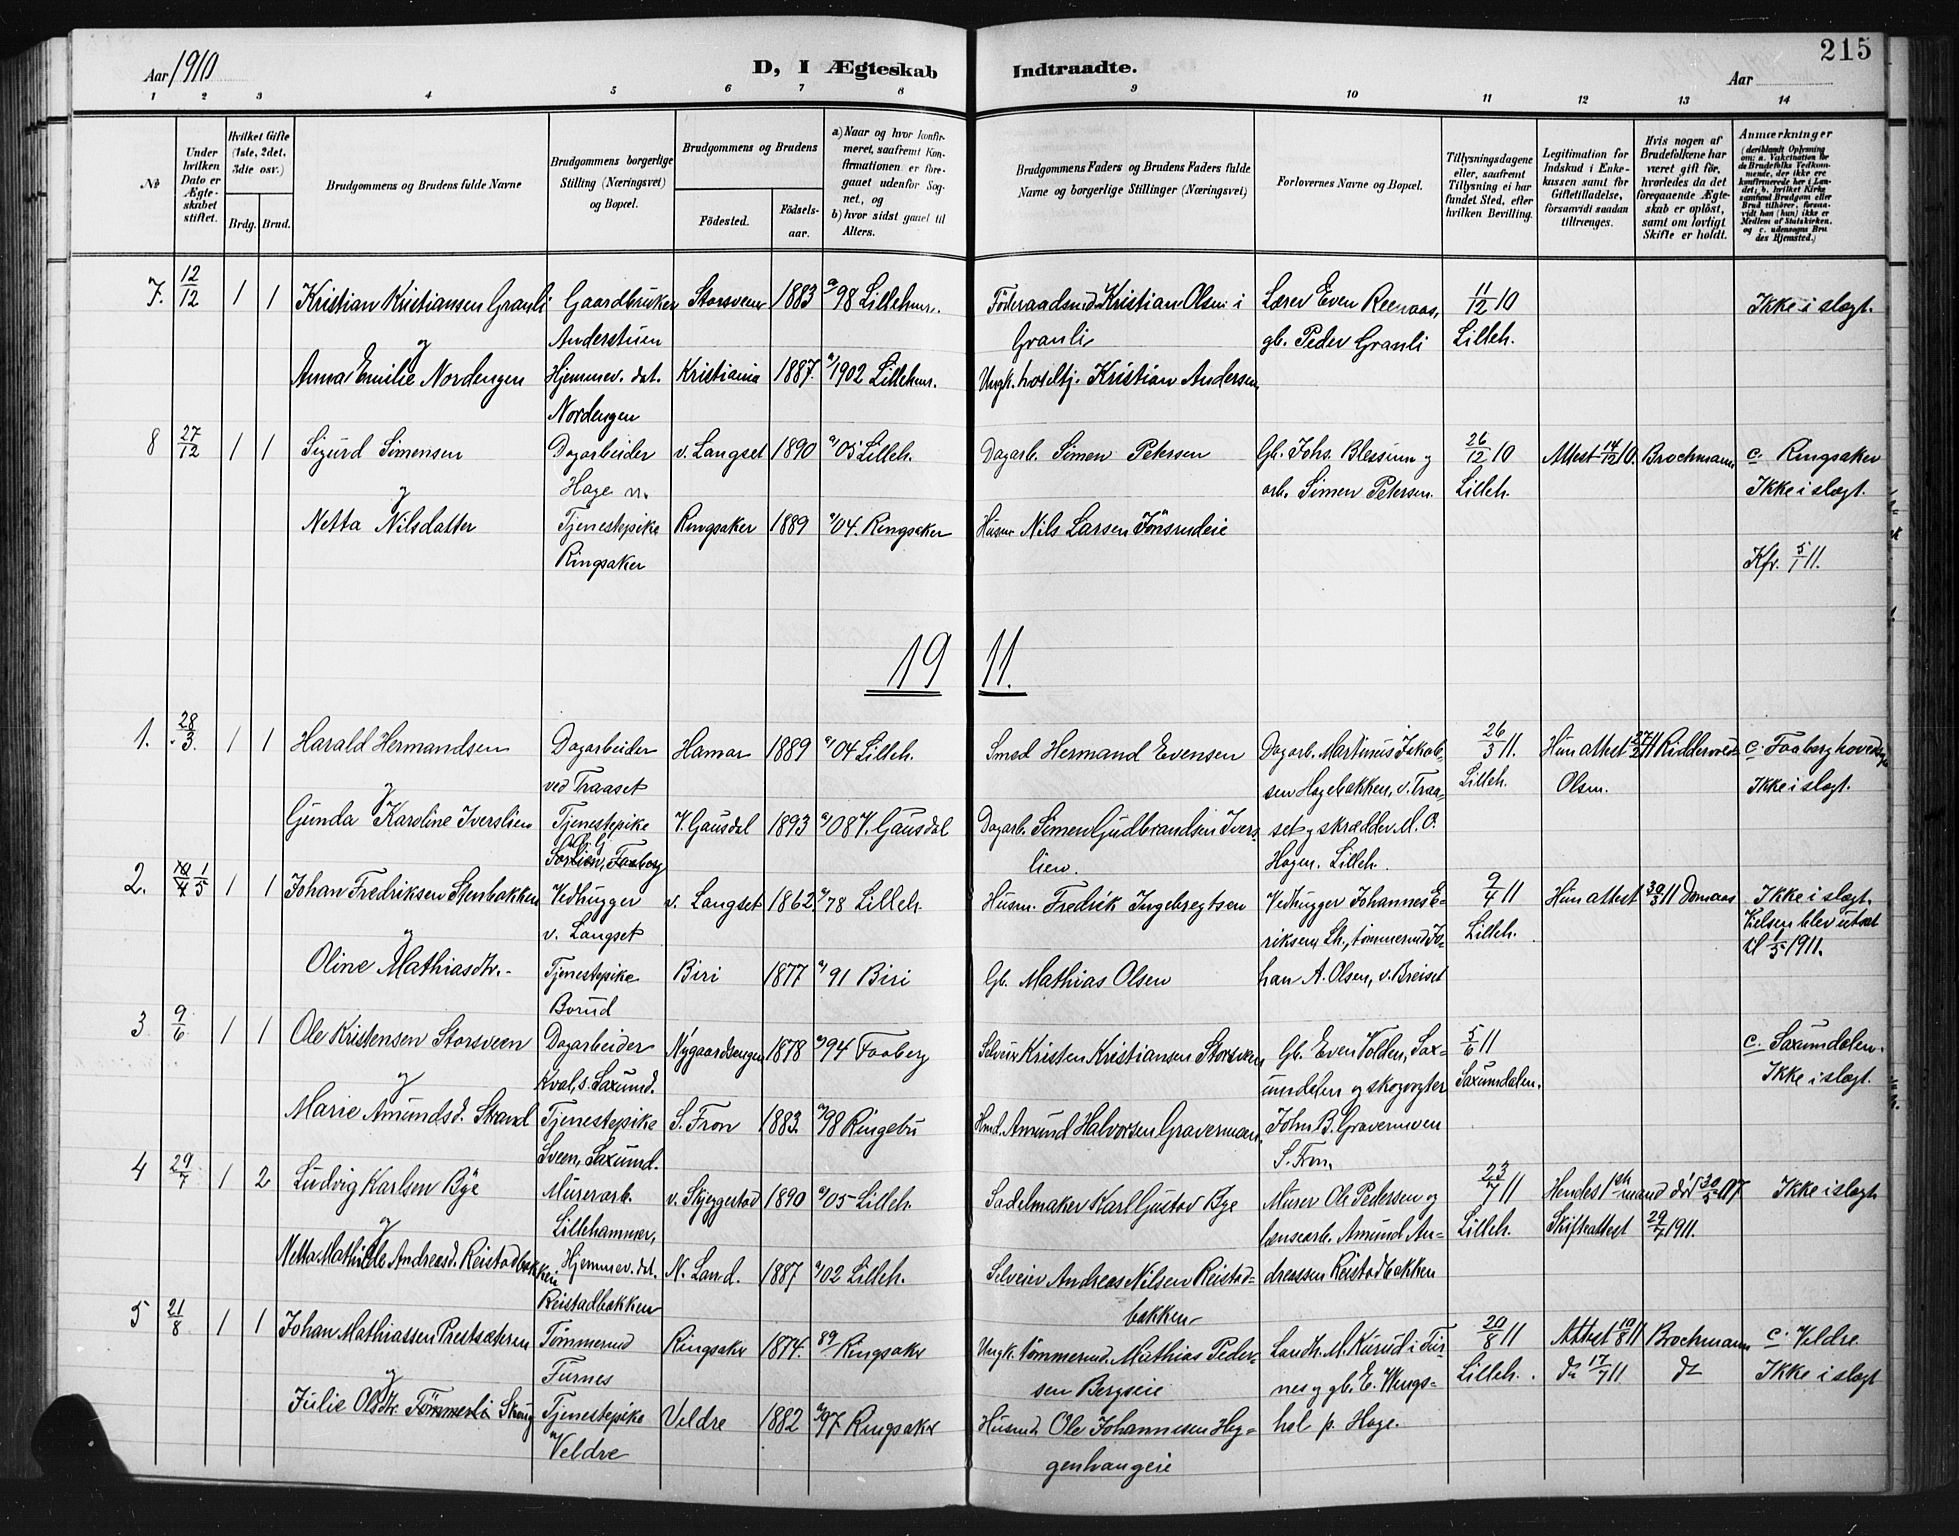 215
Aar 1910
D, I Ægteskab Indtraadte.
Aar
1 2 3 4 5 6 7 8 9 10 11 12 13 14
No
Under hvilken Dato er Ægteskabet stiftet.
Hvilket Gifte (1ste, 2det, 3dte osv.)
Brdg. Brud.
Brudgommens og Brudens fulde Navne
Brudgommens borgerlige Stilling (Næringsvei) og Bopæl.
Brudgommens og Brudens
Födested.
Födselsaar.
a) Naar og hvor konfirmeret, saafremt Konfirmationen er foregaaet udenfor Sognet, og
b) hvor sidst gaaet til Alters.
Brudgommens Faders og Brudens Faders fulde Navne og borgerlige Stillinger (Næringsvei)
Forlovernes Navne og Bopæl.
Tillysningsdagene eller, saafremt Tillysning ei har fundet Sted, efter hvilken Bevilling.
Legitimation for Indskud i Enkekassen samt for Giftetilladelse, forsaavidt saadan tiltrænges.
Hvis nogen af Brudefolkene har været gift för, hvorledes da det foregaaende Ægteskab er oplöst, samt om lovligt Skifte er holdt.
Anmærkninger
7. 12/12 1 1 Kristian Kristiansen Granli Gaardbruker Storsveen 1883 a/98 Lillehmr. Föderaadsmd. Kristian Olsen i Lærer Even Reenaas, 11/12 10 Ikke i slegt.
og Anderstuen Granli gb. Peder Granli Lilleh.
Anna Emilie Nordengen Hjemmev. dat. Kristiania 1887. a/1902 Lillehmr. Ungk. hotelbj. Kristian Andersen
Nordengen
8 27/12 1 1 Sigurd Simensen Dagarbeider v. Langset 1890 a/05 Lilleh. Dagarb. Simen Petersen Gb. Johs. Blessum og 26/12 10 Attest 14/12 10. Brochmann c. Ringsaker
og Hage vn. arb. Simen Petersen. Lilleh. Ikke i slegt.
Netta Nilsdatter Tjenestepike Ringsaker 1889 a/04. Ringsaker Husm. Nils Larsen Jönsrudeie
Ringsaker Kfr. 5/1 11.
19 11.
1. 28/3. 1 1 Harald Hermandsen Dagarbeider Hamar 1889 a/04 Lilleh. Smed Hermand Evensen Dagarb. Martinus Jakob- 26/3 11. Hun attest 27/2 11 Ridderwold c. Faaberg hovedsogn
og ved Traaset sen Hagebakken, v. Traa- Lilleh. Olsen. Ikke i slegt.
Gunda Karoline Iverslien Tjenestepike V. Gausdal 1893 a/08 V. Gausdal Dagarb. Simen Gudbrandsen Ivers- set og skrædder M. O.
Faaberg lien. Hagen. Lilleh.
2. 1/5 1 1 Johan Fredriksen Stenbakken Vedhugger v. Langset 1862 a/78 Lilleh. Husm. Fredrik Ingebregtsen Vedhugger Johannes E- 9/4 11 Hun attest 30/3 11 Domaas Ikke i slegt.
og v. Langset riksen, Lh., tömmermd. Jo- Lilleh. Vielsen blev utsat
Oline Mathiasdtr. Tjenestepike Biri 1877 a/91 Biri Gb. Mathias Olsen han A. Olsen, v. Breiset til 1/5 1911.
Borud
3 9/6 1 1 Ole Kristensen Storsveen Dagarbeider Nygaardsengen 1878 a/94 Faaberg Selveier Kristen Kristiansen Storsveen Gb. Even Volden, Sax- 5/6 11 c. Saxumdalen.
og Kval, s. Saxumd. umdalen og skogvogter Saxumdalen. Ikke i slegt.
Marie Amundsd. Strand Tjenestepike S. Fron 1883. a/98 Ringebu Hmd. Amund Halvorsen Gravermoen John B. Gravermoen
Sveen, Saxumd. S. Fron.
4 29/7 1 2 Ludvig Karlsen Bye Murerarb. v. Skjeggestad 1890 a/05 Lilleh. Sadelmaker Karl Gustav Bye Murer Ole Pedersen og 23/7 11 Hendes 1ste mand död 30/5 07. Ikke i slegt
og Lillehammer, lænsearb. Amund An- Lilleh. Skifteattest 29/7 1911.
Netta Mathilde Andreasd. Reistadbakken Hjemmev. dat. N. Land. 1887 a/02 Lilleh. Selveier Andreas Nilsen Reistad- dreassen Reistadbakken
Reistadbakken bakken
5 21/8 1 1 Johan Mathiassen Prestsæteren Tömmermd Ringsaker 1874. 89 Ringsaker Ungk. tömmermd. Mathias Peder- Landh. M. Kurud i Fur- 20/8 11 Attest 19/8 11 Brochmann c. Veldre
og Furnes sen Bergseie nes og gb. E. Wengs- Lilleh. do 17/7 11 do Ikke i slegt
Julie Olsdtr. Tömmerli Skaug Tjenestepike Veldre 1882 a/97 Ringsaker Husmd. Ole Johannesen Hey- hol p. Hage.
Veldre genhaugeie